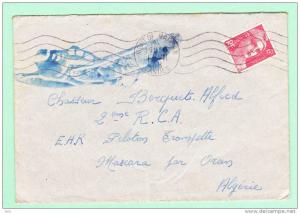 Chasseur Bocquet Alfred
2ème R.C.A.
E.H.R Peloton Trompette
Mascara par Oran
Algérie